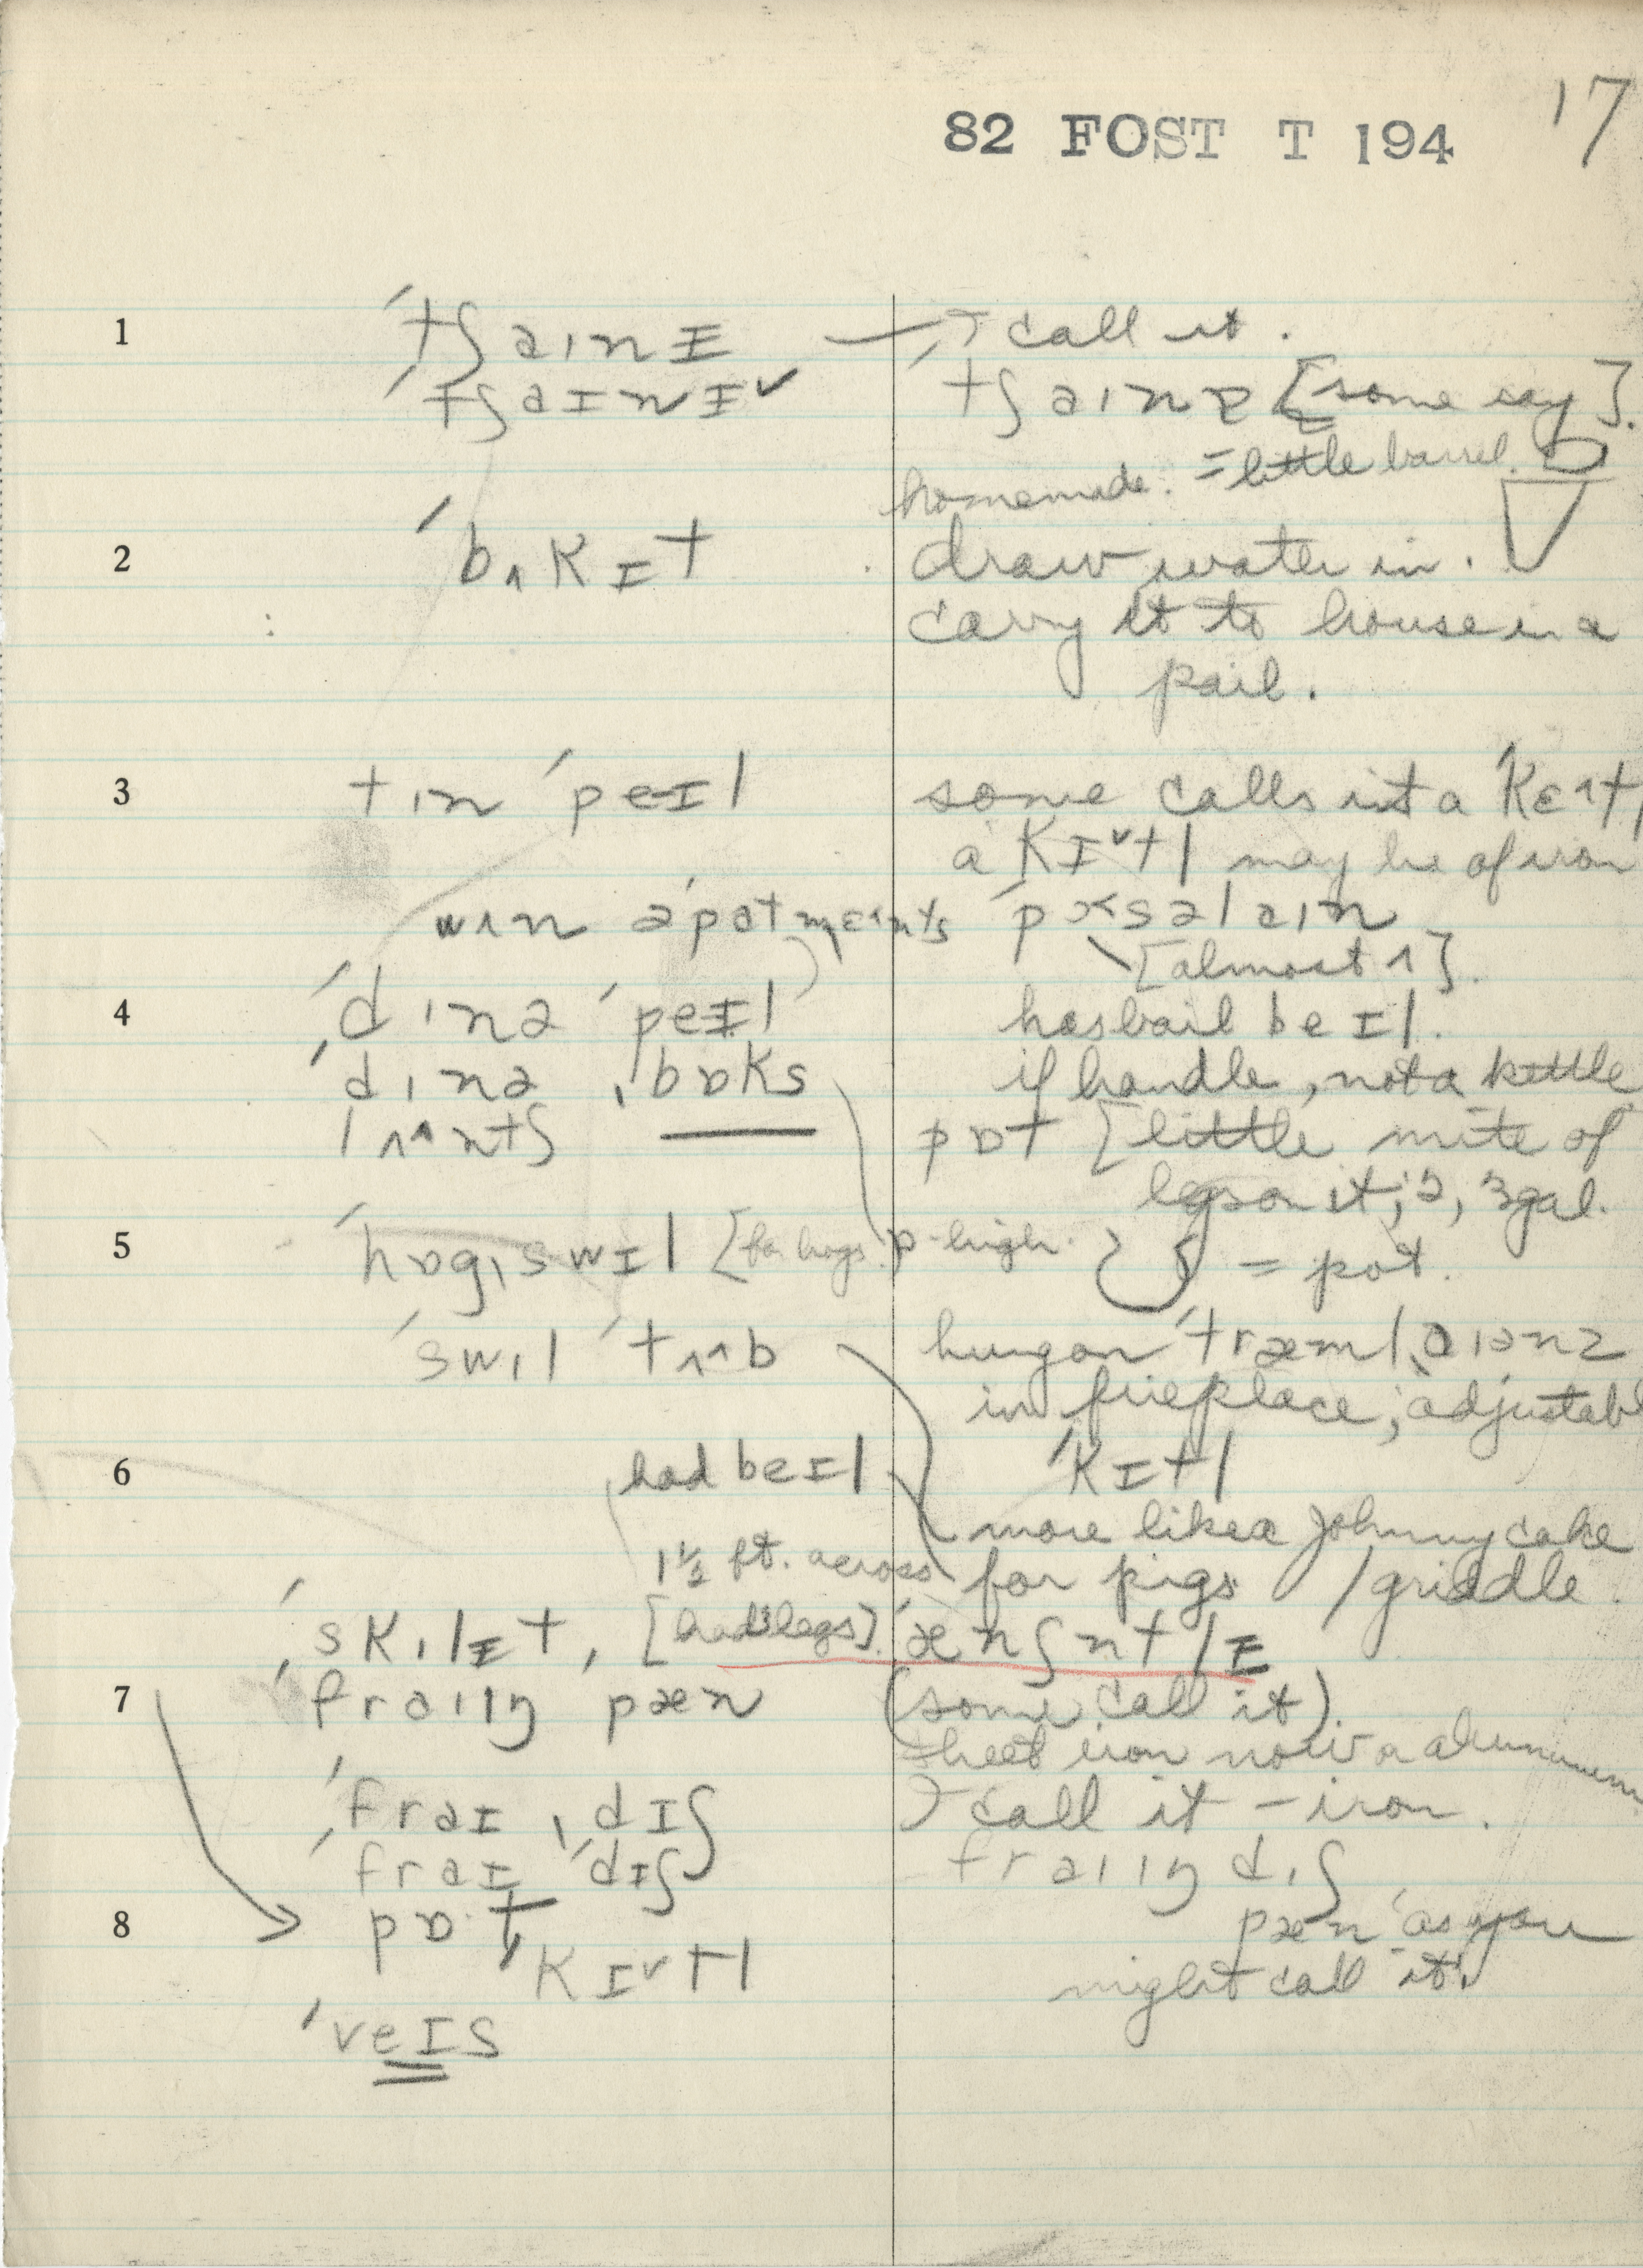 17
82 FOST T 194
1 ˈtʃaɪnɪ — I call it.
ˈtʃaɪnɪ˅ ˈtʃaɪnɪ [some say].
homemade. = little barrel.
2 ˈbʌkɪt draw water in.
carry it to house in a
pail.
3 tɪn ˈpeɪl some calls it a ˈkɛ^tl
a kɪ˅tl may be of iron
wʌn əˈpɑtmɛ^nts ˈpɔsəlɪn
[almost ʌ].
4 ˈdɪnə ˈpeɪl has bail beɪl.
ˈdɪnə ˌbɒks if handle, not a kettle
lʌ^ntʃ pɒt [little mite of
legs on it; 2, 3 gal.
5 ˈhɒgˌswɪl [for hogs. p-high. = pot.
ˈswɪl ˈtʌ^b hung on ˈtræmlˌaɪənz
in fireplace; adjustabl
6 had beɪl ˈkɪtl
more like a Johnny cake
1½ ft. across for pigs /griddle.
ˈskɪlɪt, [had 3 legs]. ˈænʃntlɪ
7 ˈfraɪɪŋ pæn (some call it).
sheet iron now or aluminum
ˈfraɪ ˌdɪʃ I call it – iron.
ˈfraɪ ˈdɪʃ fraɪɪŋ dɪʃ
8 pɒ·t pæn "as you
ˈkɪ˅tl might call it".
ˈveɪs